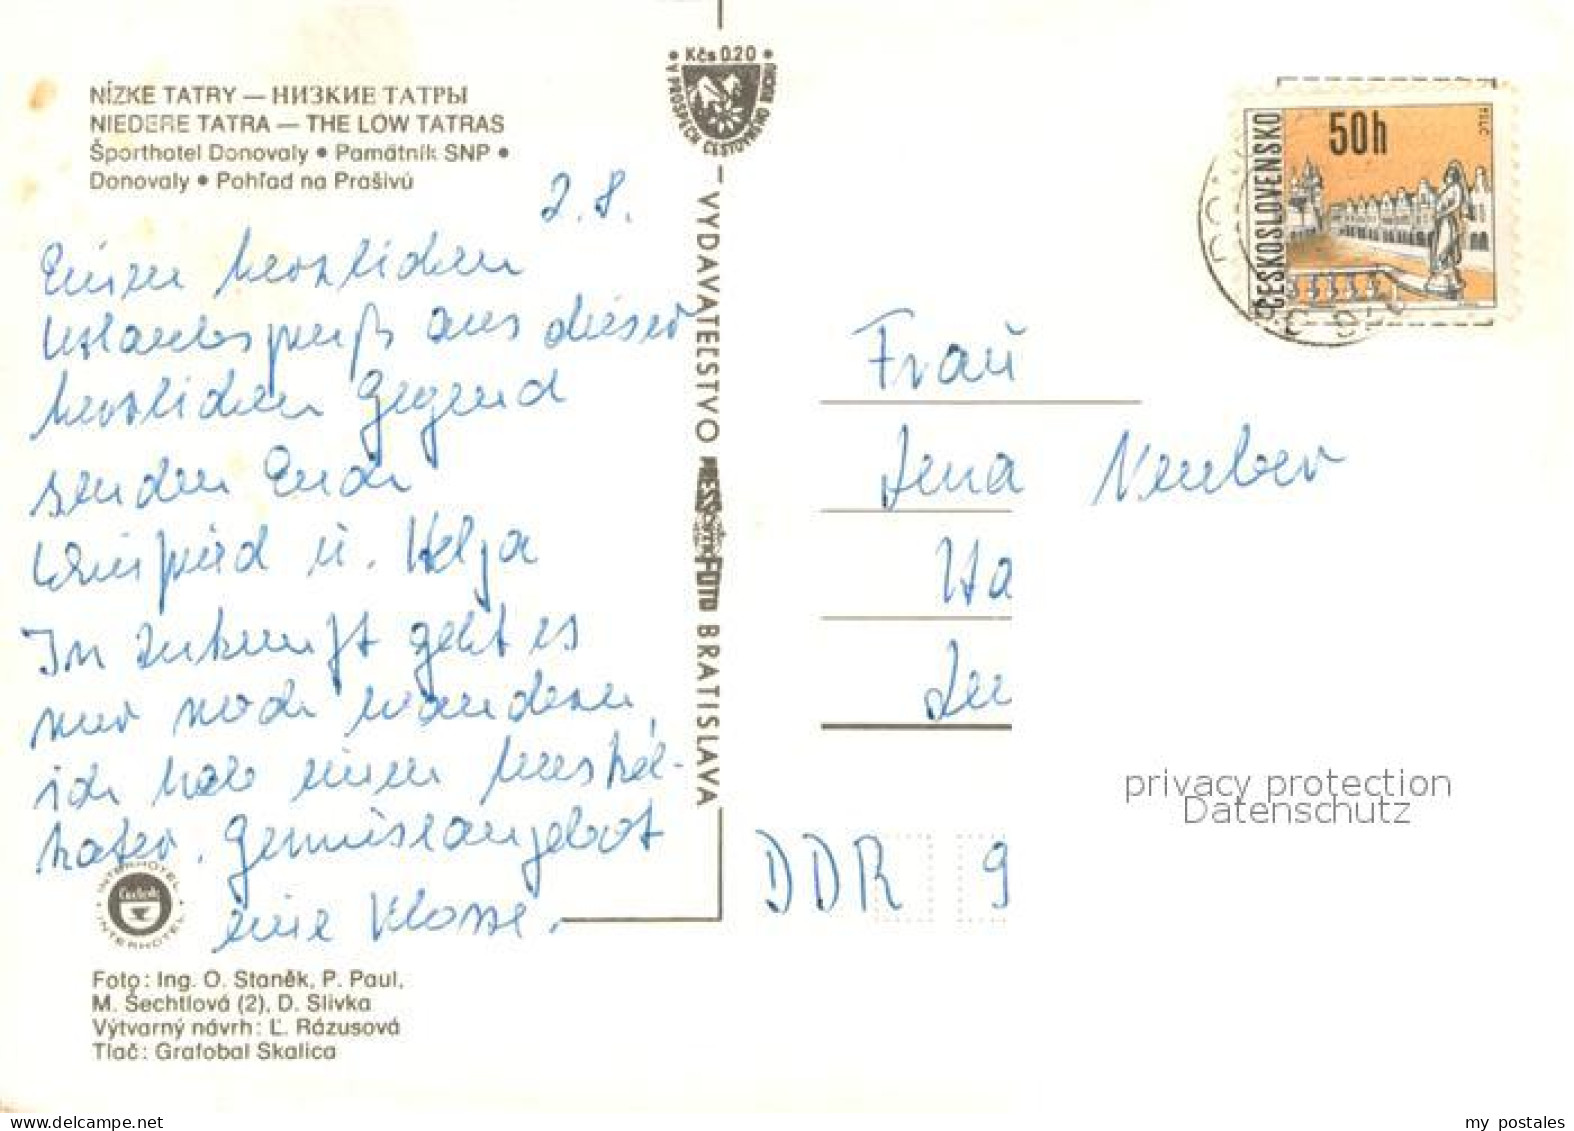 NÍZKE TATRY — НИЗКИЕ ТАТРЫ
NIEDERE TATRA — THE LOW TATRAS
Športhotel Donovaly • Pamätník SNP •
Donovaly • Pohľad na Prašivú
2.8.
Einen herzlichen
Urlaubsgruß aus dieser
herzlichen Gegend
senden Euch
Winfried u. Helga
In Zukunft geht es
nur noch wandern,
ich habe einen Muskel-
kater. Gemüseangebot
eine Klasse.
INTERHOTEL
INTERHOTEL
Foto: Ing. O. Staněk, P. Paul,
M. Šechtlová (2), D. Slivka
Výtvarný návrh: Ľ. Rázusová
Tlač: Grafobal Skalica
• Kčs 0.20 •
V PROSPECH CESTOVNÉHO RUCHU
VYDAVATEĽSTVO PRESSFOTO BRATISLAVA
ČESKOSLOVENSKO
50h
Frau
Neuber
DDR 9
privacy protection
Datenschutz
my postales